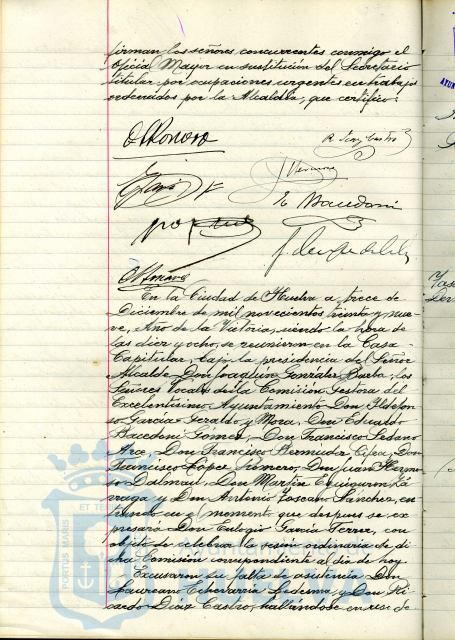 firman los señores concurrentes conmigo el
Oficial Mayor en sustitución del Secretario
titular por ocupaciones urgentes en trabajos
ordenados por la Alcaldía, que certifico:
R Diaz Castro
E Bacedoni
En la Ciudad de Huelva a trece de
Diciembre de mil novecientos treinta y nue-
ve, Año de la Victoria, siendo la hora de
las diez y ocho, se reunieron en la Casa
Capitular, bajo la presidencia del Señor
Alcalde Don Joaquín González Barba, los
Señores Vocales de la Comisión Gestora del
Excelentísimo Ayuntamiento Don Ildefon-
so García Geraldo y Mora, Don Eduardo
Bacedoni Gomez, Don Francisco Sedano
Arce, Don Francisco Bermudez Cifea, Don
Francisco López Romero, Don Juan Bermo-
Dalmau, Don Martin
y Don Antonio Toscano Sánchez, en-
trando en el momento que despues se ex-
presará Don Eutogio García Ferrer, con
objeto de celebrar la sesión ordinaria de di-
cha Comisión correspondiente al día de hoy
Excusaron su falta de asistencia Don
Laureano Echevarría Ledesma y Don Ri-
cardo Diaz Castro, hallándose en uso de
PORTUS MARIS
ET TE
Ayuntamiento de